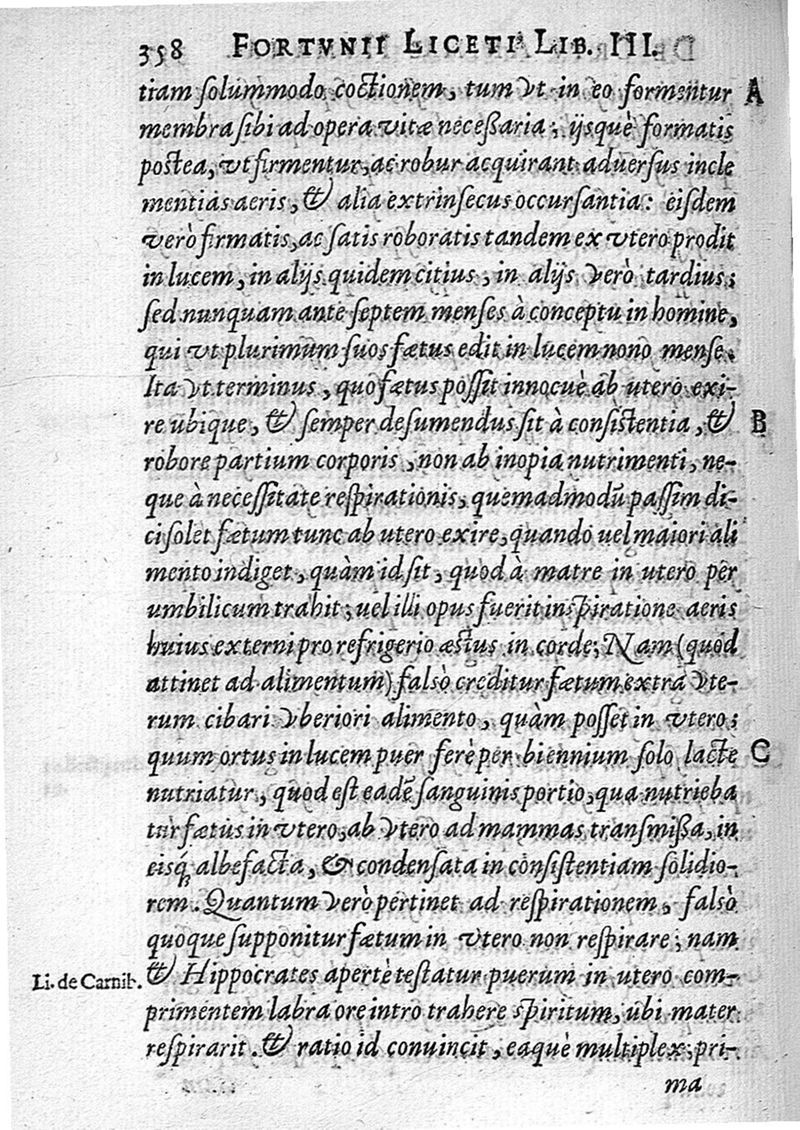 358 FORTVNII LICETI LIB. III.
tiam ſolummodo coctionem, tum vt in eo formentur A
membra ſibi ad opera vitæ neceßaria; ijsquè formatis
poſtea, vt firmentur, ac robur acquirant aduerſus incle
mentias aeris, & alia extrinſecus occurſantia: eiſdem
verò firmatis, ac ſatis roboratis tandem ex vtero prodit
in lucem, in alijs quidem citius, in alijs verò tardius;
ſed nunquam ante ſeptem menſes à conceptu in homine,
qui vt plurimum ſuos fætus edit in lucem nono menſe.
Ita vt terminus, quo fætus poſſit innocuè ab utero exi-
re ubique, & ſemper deſumendus ſit à conſiſtentia, & B
robore partium corporis, non ab inopia nutrimenti, ne-
que à neceſſitate reſpirationis, quemadmodū paſſim di-
ci ſolet fætum tunc ab utero exire, quando uel maiori ali
mento indiget, quàm id ſit, quod à matre in utero per
umbilicum trahit; uel illi opus fuerit inſpiratione aeris
huius externi pro refrigerio æſtus in corde; Nam (quod
attinet ad alimentum) falsò creditur fætum extra vte-
rum cibari vberiori alimento, quàm poſſet in vtero;
quum ortus in lucem puer ferè per biennium ſolo lacte C
nutriatur, quod eſt eadē ſanguinis portio, qua nutrieba
tur fætus in vtero, ab vtero ad mammas transmißa, in
eisq́; albefacta, & condenſata in conſiſtentiam ſolidio-
rem. Quantum verò pertinet ad reſpirationem, falsò
quoque ſupponitur fætum in vtero non reſpirare; nam
Li. de Carnib. & Hippocrates apertè teſtatur puerum in utero com-
primentem labra ore intro trahere ſpiritum, ubi mater
reſpirarit. & ratio id conuincit, eaquè multiplex; pri-
ma